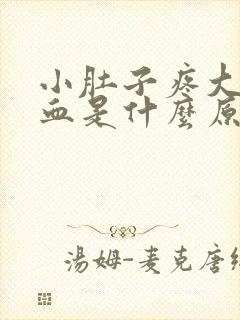 小肚子疼大
血是什麼原
湯姆-麦克唐